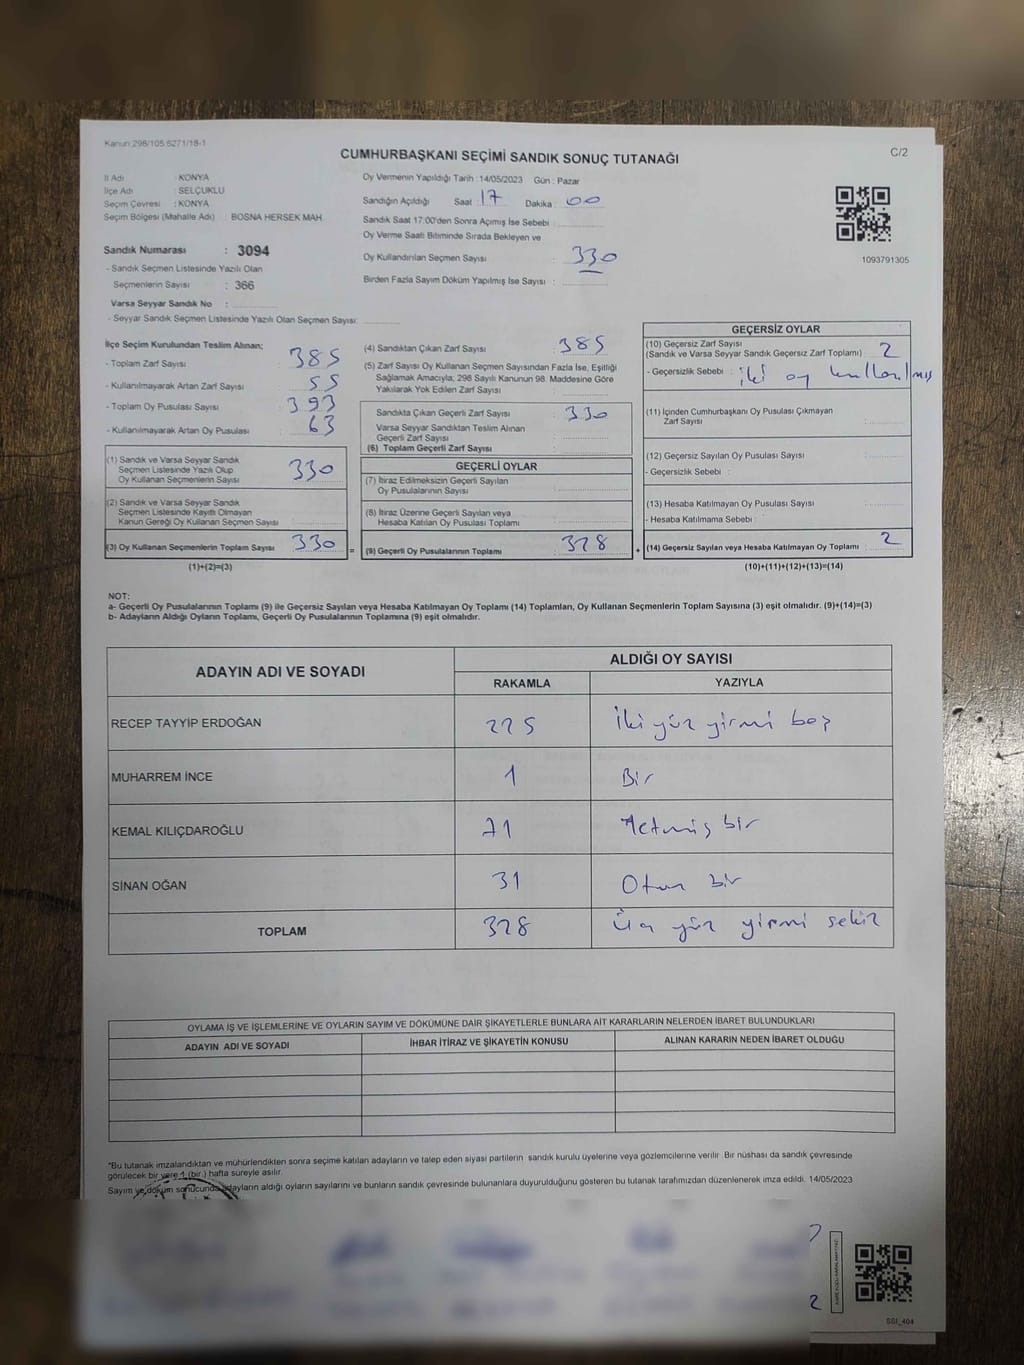 Kanun:298/105.6271/18-1
CUMHURBAŞKANI SEÇİMİ SANDIK SONUÇ TUTANAĞI
C/2
İl Adı : KONYA
İlçe Adı : SELÇUKLU
Seçim Çevresi : KONYA
Seçim Bölgesi (Mahalle Adı) : BOSNA HERSEK MAH.
Sandık Numarası : 3094
- Sandık Seçmen Listesinde Yazılı Olan
Seçmenlerin Sayısı : 366
Varsa Seyyar Sandık No :
- Seyyar Sandık Seçmen Listesinde Yazılı Olan Seçmen Sayısı:
Oy Vermenin Yapıldığı Tarih : 14/05/2023 Gün : Pazar
Sandığın Açıldığı Saat 17 Dakika : 00
Sandık Saat 17:00'den Sonra Açımış İse Sebebi :
Oy Verme Saati Bitiminde Sırada Bekleyen ve
Oy Kullandırılan Seçmen Sayısı : 330
Birden Fazla Sayım Döküm Yapılmış İse Sayısı :
1093791305
İlçe Seçim Kurulundan Teslim Alınan;
- Toplam Zarf Sayısı : 385
- Kullanılmayarak Artan Zarf Sayısı : 55
- Toplam Oy Pusulası Sayısı : 393
- Kullanılmayarak Artan Oy Pusulası : 63
(1) Sandık ve Varsa Seyyar Sandık
Seçmen Listesinde Yazılı Olup
Oy Kullanan Seçmenlerin Sayısı : 330
(2) Sandık ve Varsa Seyyar Sandık
Seçmen Listesinde Kayıtlı Olmayan
Kanun Gereği Oy Kullanan Seçmen Sayısı :
(3) Oy Kullanan Seçmenlerin Toplam Sayısı : 330 =
(1)+(2)=(3)
(4) Sandıktan Çıkan Zarf Sayısı : 385
(5) Zarf Sayısı Oy Kullanan Seçmen Sayısından Fazla İse, Eşitliği
Sağlamak Amacıyla, 298 Sayılı Kanunun 98. Maddesine Göre
Yakılarak Yok Edilen Zarf Sayısı :
Sandıkta Çıkan Geçerli Zarf Sayısı : 330
Varsa Seyyar Sandıktan Teslim Alınan
Geçerli Zarf Sayısı :
(6) Toplam Geçerli Zarf Sayısı :
GEÇERLİ OYLAR
(7) İtiraz Edilmeksizin Geçerli Sayılan
Oy Pusulalarının Sayısı :
(8) İtiraz Üzerine Geçerli Sayılan veya
Hesaba Katılan Oy Pusulası Toplamı :
(9) Geçerli Oy Pusulalarının Toplamı : 328 +
GEÇERSİZ OYLAR
(10) Geçersiz Zarf Sayısı
(Sandık ve Varsa Seyyar Sandık Geçersiz Zarf Toplamı) : 2
- Geçersizlik Sebebi : iki oy kullanılmış
(11) İçinden Cumhurbaşkanı Oy Pusulası Çıkmayan
Zarf Sayısı :
(12) Geçersiz Sayılan Oy Pusulası Sayısı :
- Geçersizlik Sebebi :
(13) Hesaba Katılmayan Oy Pusulası Sayısı :
- Hesaba Katılmama Sebebi :
(14) Geçersiz Sayılan veya Hesaba Katılmayan Oy Toplamı : 2
(10)+(11)+(12)+(13)=(14)
NOT:
a- Geçerli Oy Pusulalarının Toplamı (9) ile Geçersiz Sayılan veya Hesaba Katılmayan Oy Toplamı (14) Toplamları, Oy Kullanan Seçmenlerin Toplam Sayısına (3) eşit olmalıdır. (9)+(14)=(3)
b- Adayların Aldığı Oyların Toplamı, Geçerli Oy Pusulalarının Toplamına (9) eşit olmalıdır.
ADAYIN ADI VE SOYADI
ALDIĞI OY SAYISI
RAKAMLA YAZIYLA
RECEP TAYYİP ERDOĞAN 225 İki yüz yirmi beş
MUHARREM İNCE 1 Bir
KEMAL KILIÇDAROĞLU 71 Yetmiş bir
SİNAN OĞAN 31 Otuz bir
TOPLAM 328 Üç yüz yirmi sekiz
OYLAMA İŞ VE İŞLEMLERİNE VE OYLARIN SAYIM VE DÖKÜMÜNE DAİR ŞİKAYETLERLE BUNLARA AİT KARARLARIN NELERDEN İBARET BULUNDUKLARI
ADAYIN ADI VE SOYADI İHBAR İTİRAZ VE ŞİKAYETİN KONUSU ALINAN KARARIN NEDEN İBARET OLDUĞU
*Bu tutanak imzalandıktan ve mühürlendikten sonra seçime katılan adayların ve talep eden siyasi partilerin sandık kurulu üyelerine veya gözlemcilerine verilir. Bir nüshası da sandık çevresinde
görülecek bir yere 1 (bir ) hafta süreyle asılır.
Sayım ve döküm sonucunda adayların aldığı oyların sayılarını ve bunların sandık çevresinde bulunanlara duyurulduğunu gösteren bu tutanak tarafımızdan düzenlenerek imza edildi. 14/05/2023
SSI_404